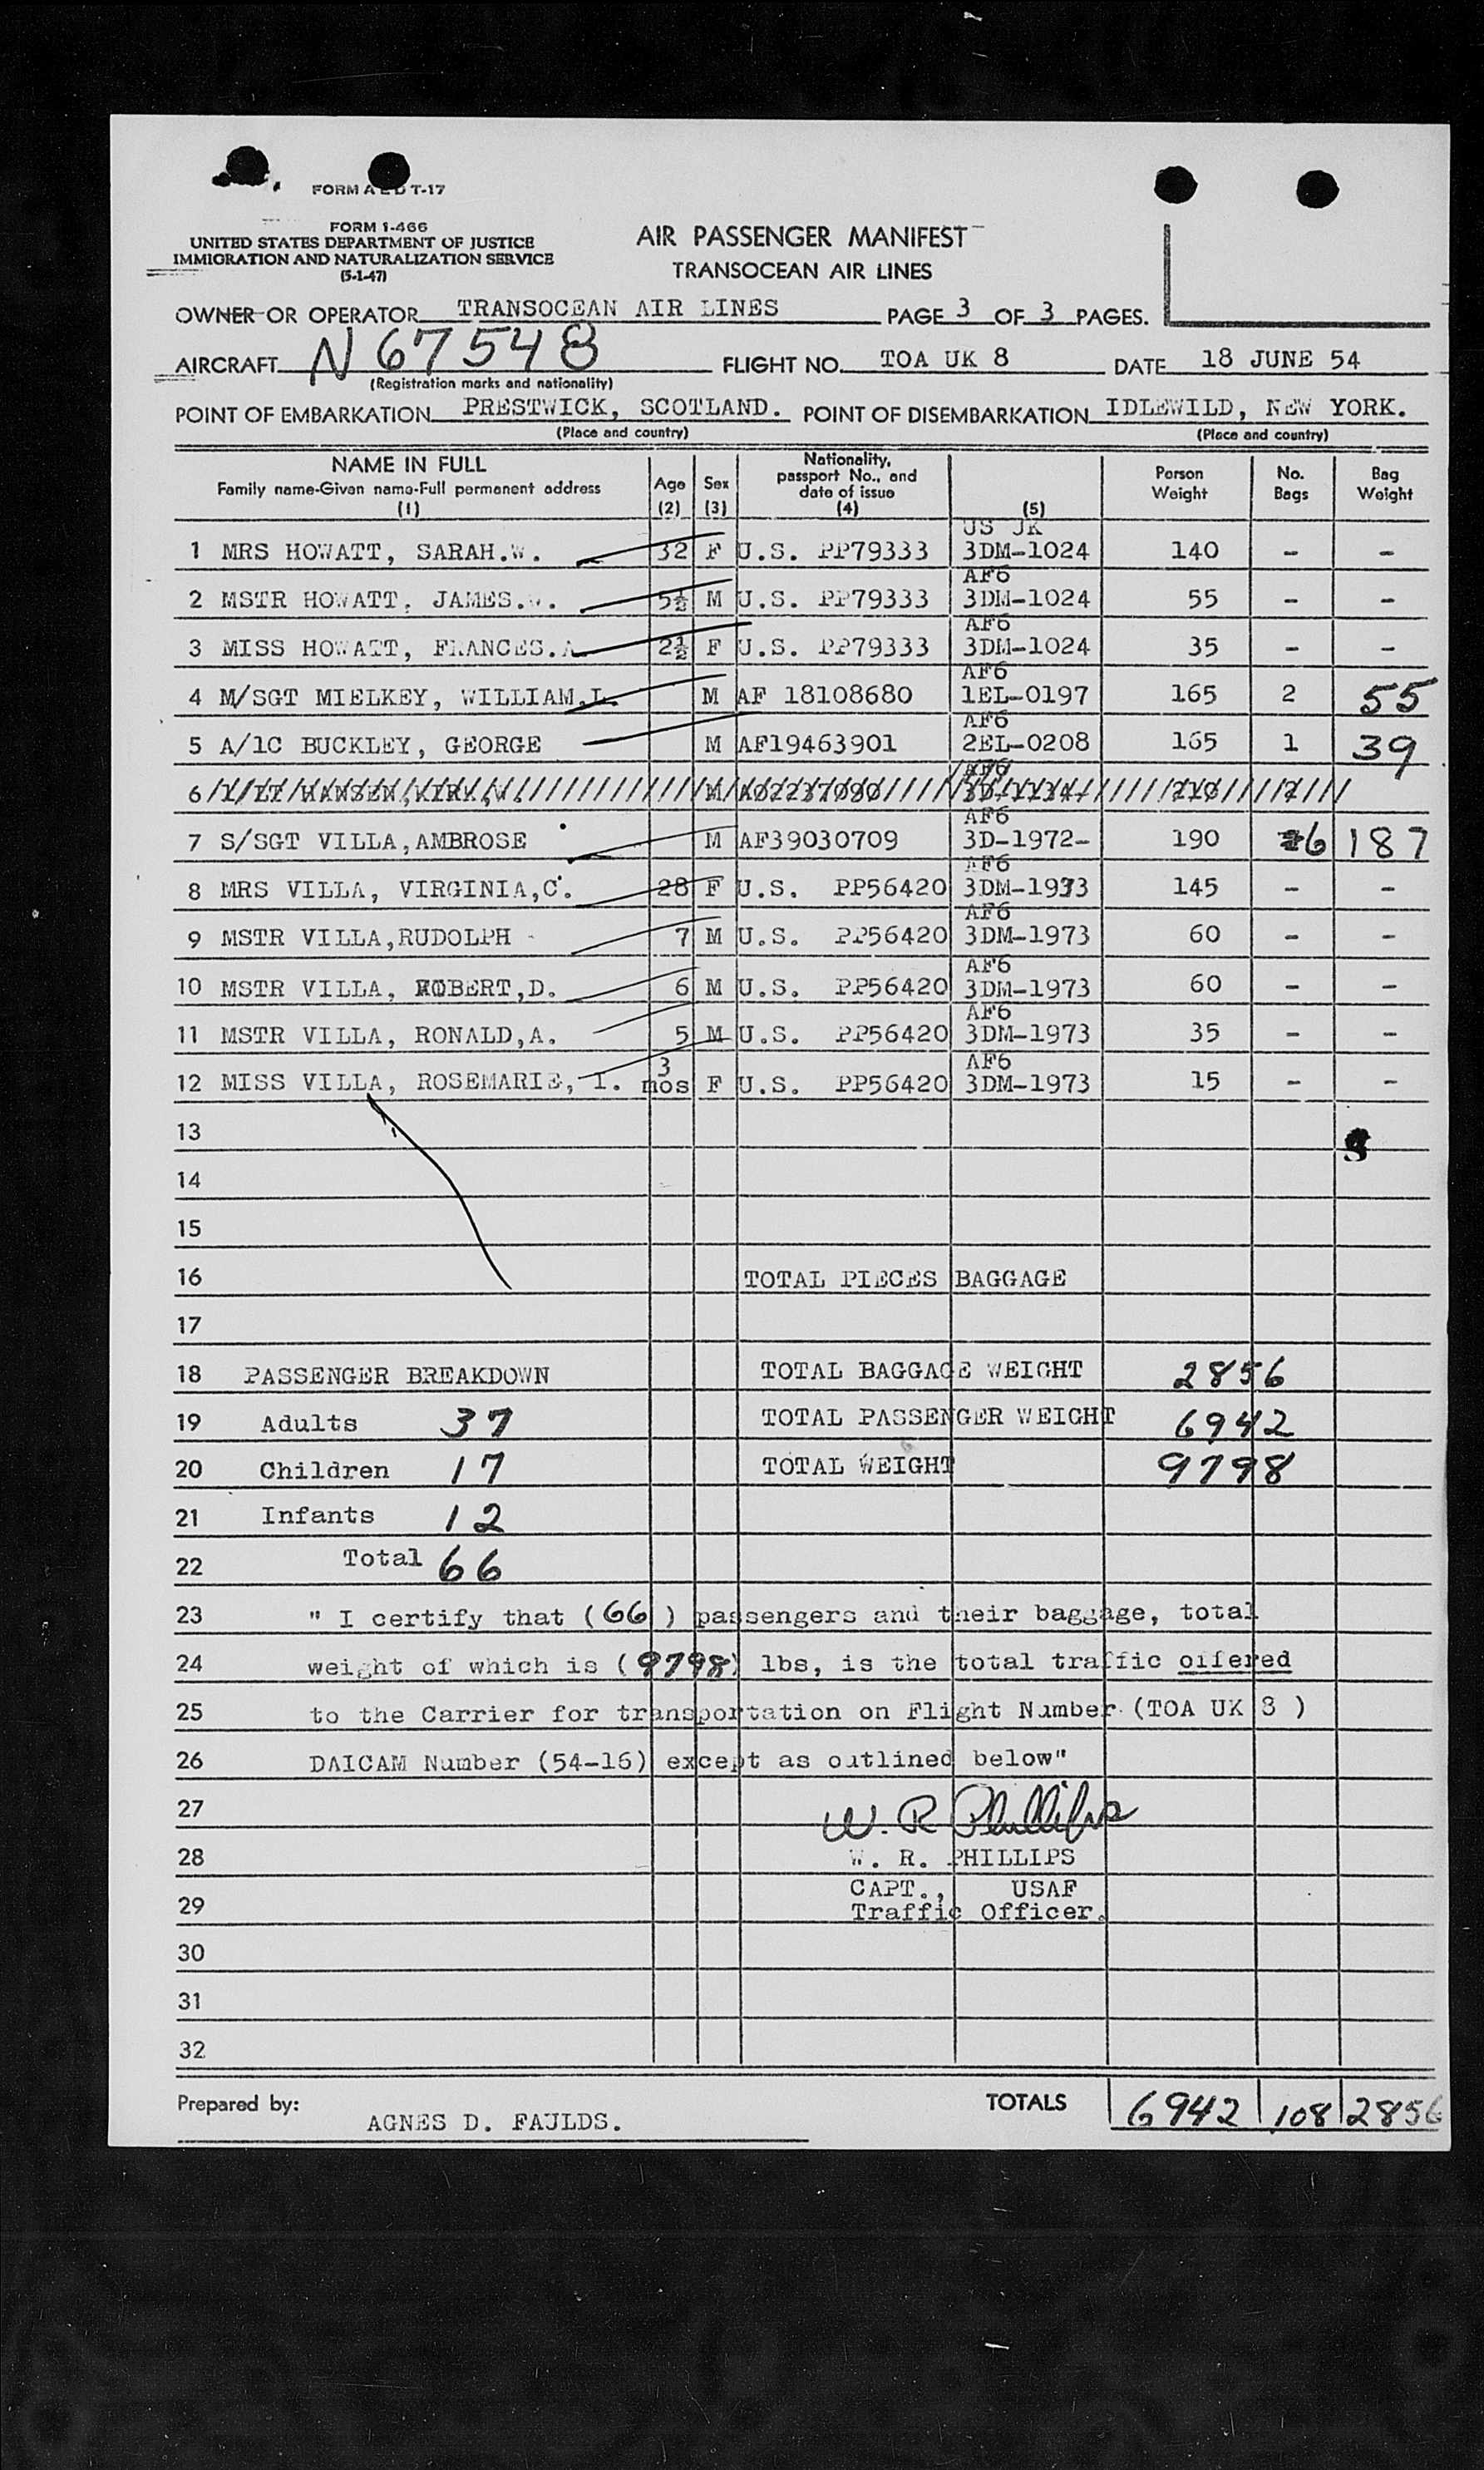 FORM A E D T-17
FORM 1-466
UNITED STATES DEPARTMENT OF JUSTICE
IMMIGRATION AND NATURALIZATION SERVICE
(5-1-47)
AIR PASSENGER MANIFEST
TRANSOCEAN AIR LINES
OWNER OR OPERATOR TRANSOCEAN AIR LINES PAGE 3 OF 3 PAGES.
AIRCRAFT N67548 FLIGHT NO. TOA UK 8 DATE 18 JUNE 54
(Registration marks and nationality)
POINT OF EMBARKATION PRESTWICK, SCOTLAND. POINT OF DISEMBARKATION IDLEWILD, NEW YORK.
(Place and country) (Place and country)
NAME IN FULL Family name-Given name-Full permanent address (1) Age (2) Sex (3) Nationality, passport No., and date of issue (4) (5) Person Weight No. Bags Bag Weight
US JK
1 MRS HOWATT, SARAH.W. 32 F U.S. PP79333 3DM-1024 140 - -
AF6
2 MSTR HOWATT, JAMES.W. 5½ M U.S. PP79333 3DM-1024 55 - -
AF6
3 MISS HOWATT, FRANCES.A 2½ F U.S. PP79333 3DM-1024 35 - -
AF6
4 M/SGT MIELKEY, WILLIAM.L. M AF 18108680 1EL-0197 165 2 55
AF6
5 A/1C BUCKLEY, GEORGE M AF19463901 2EL-0208 165 1 39
AF6
6 1/LT HANSEN,KIRK,W. M AO2237090 3D-1134 210 2
AF6
7 S/SGT VILLA,AMBROSE M AF39030709 3D-1972- 190 6 187
AF6
8 MRS VILLA, VIRGINIA,C. 28 F U.S. PP56420 3DM-1973 145 - -
AF6
9 MSTR VILLA,RUDOLPH - 7 M U.S. PP56420 3DM-1973 60 - -
AF6
10 MSTR VILLA, ROBERT,D. 6 M U.S. PP56420 3DM-1973 60 - -
AF6
11 MSTR VILLA, RONALD,A. 5 M U.S. PP56420 3DM-1973 35 - -
3 AF6
12 MISS VILLA, ROSEMARIE, I. mos F U.S. PP56420 3DM-1973 15 - -
13
14
15
16 TOTAL PIECES BAGGAGE
17
18 PASSENGER BREAKDOWN TOTAL BAGGAGE WEIGHT 2856
19 Adults 37 TOTAL PASSENGER WEIGHT 6942
20 Children 17 TOTAL WEIGHT 9798
21 Infants 12
22 Total 66
23 " I certify that (66) passengers and their baggage, total
24 weight of which is (9798) lbs, is the total traffic offered
25 to the Carrier for transportation on Flight Number (TOA UK 8 )
26 DAICAM Number (54-16) except as outlined below"
27 W. R Phillips
28 W. R. PHILLIPS
CAPT., USAF
29 Traffic Officer.
30
31
32
Prepared by: AGNES D. FAULDS. TOTALS 6942 108 2856